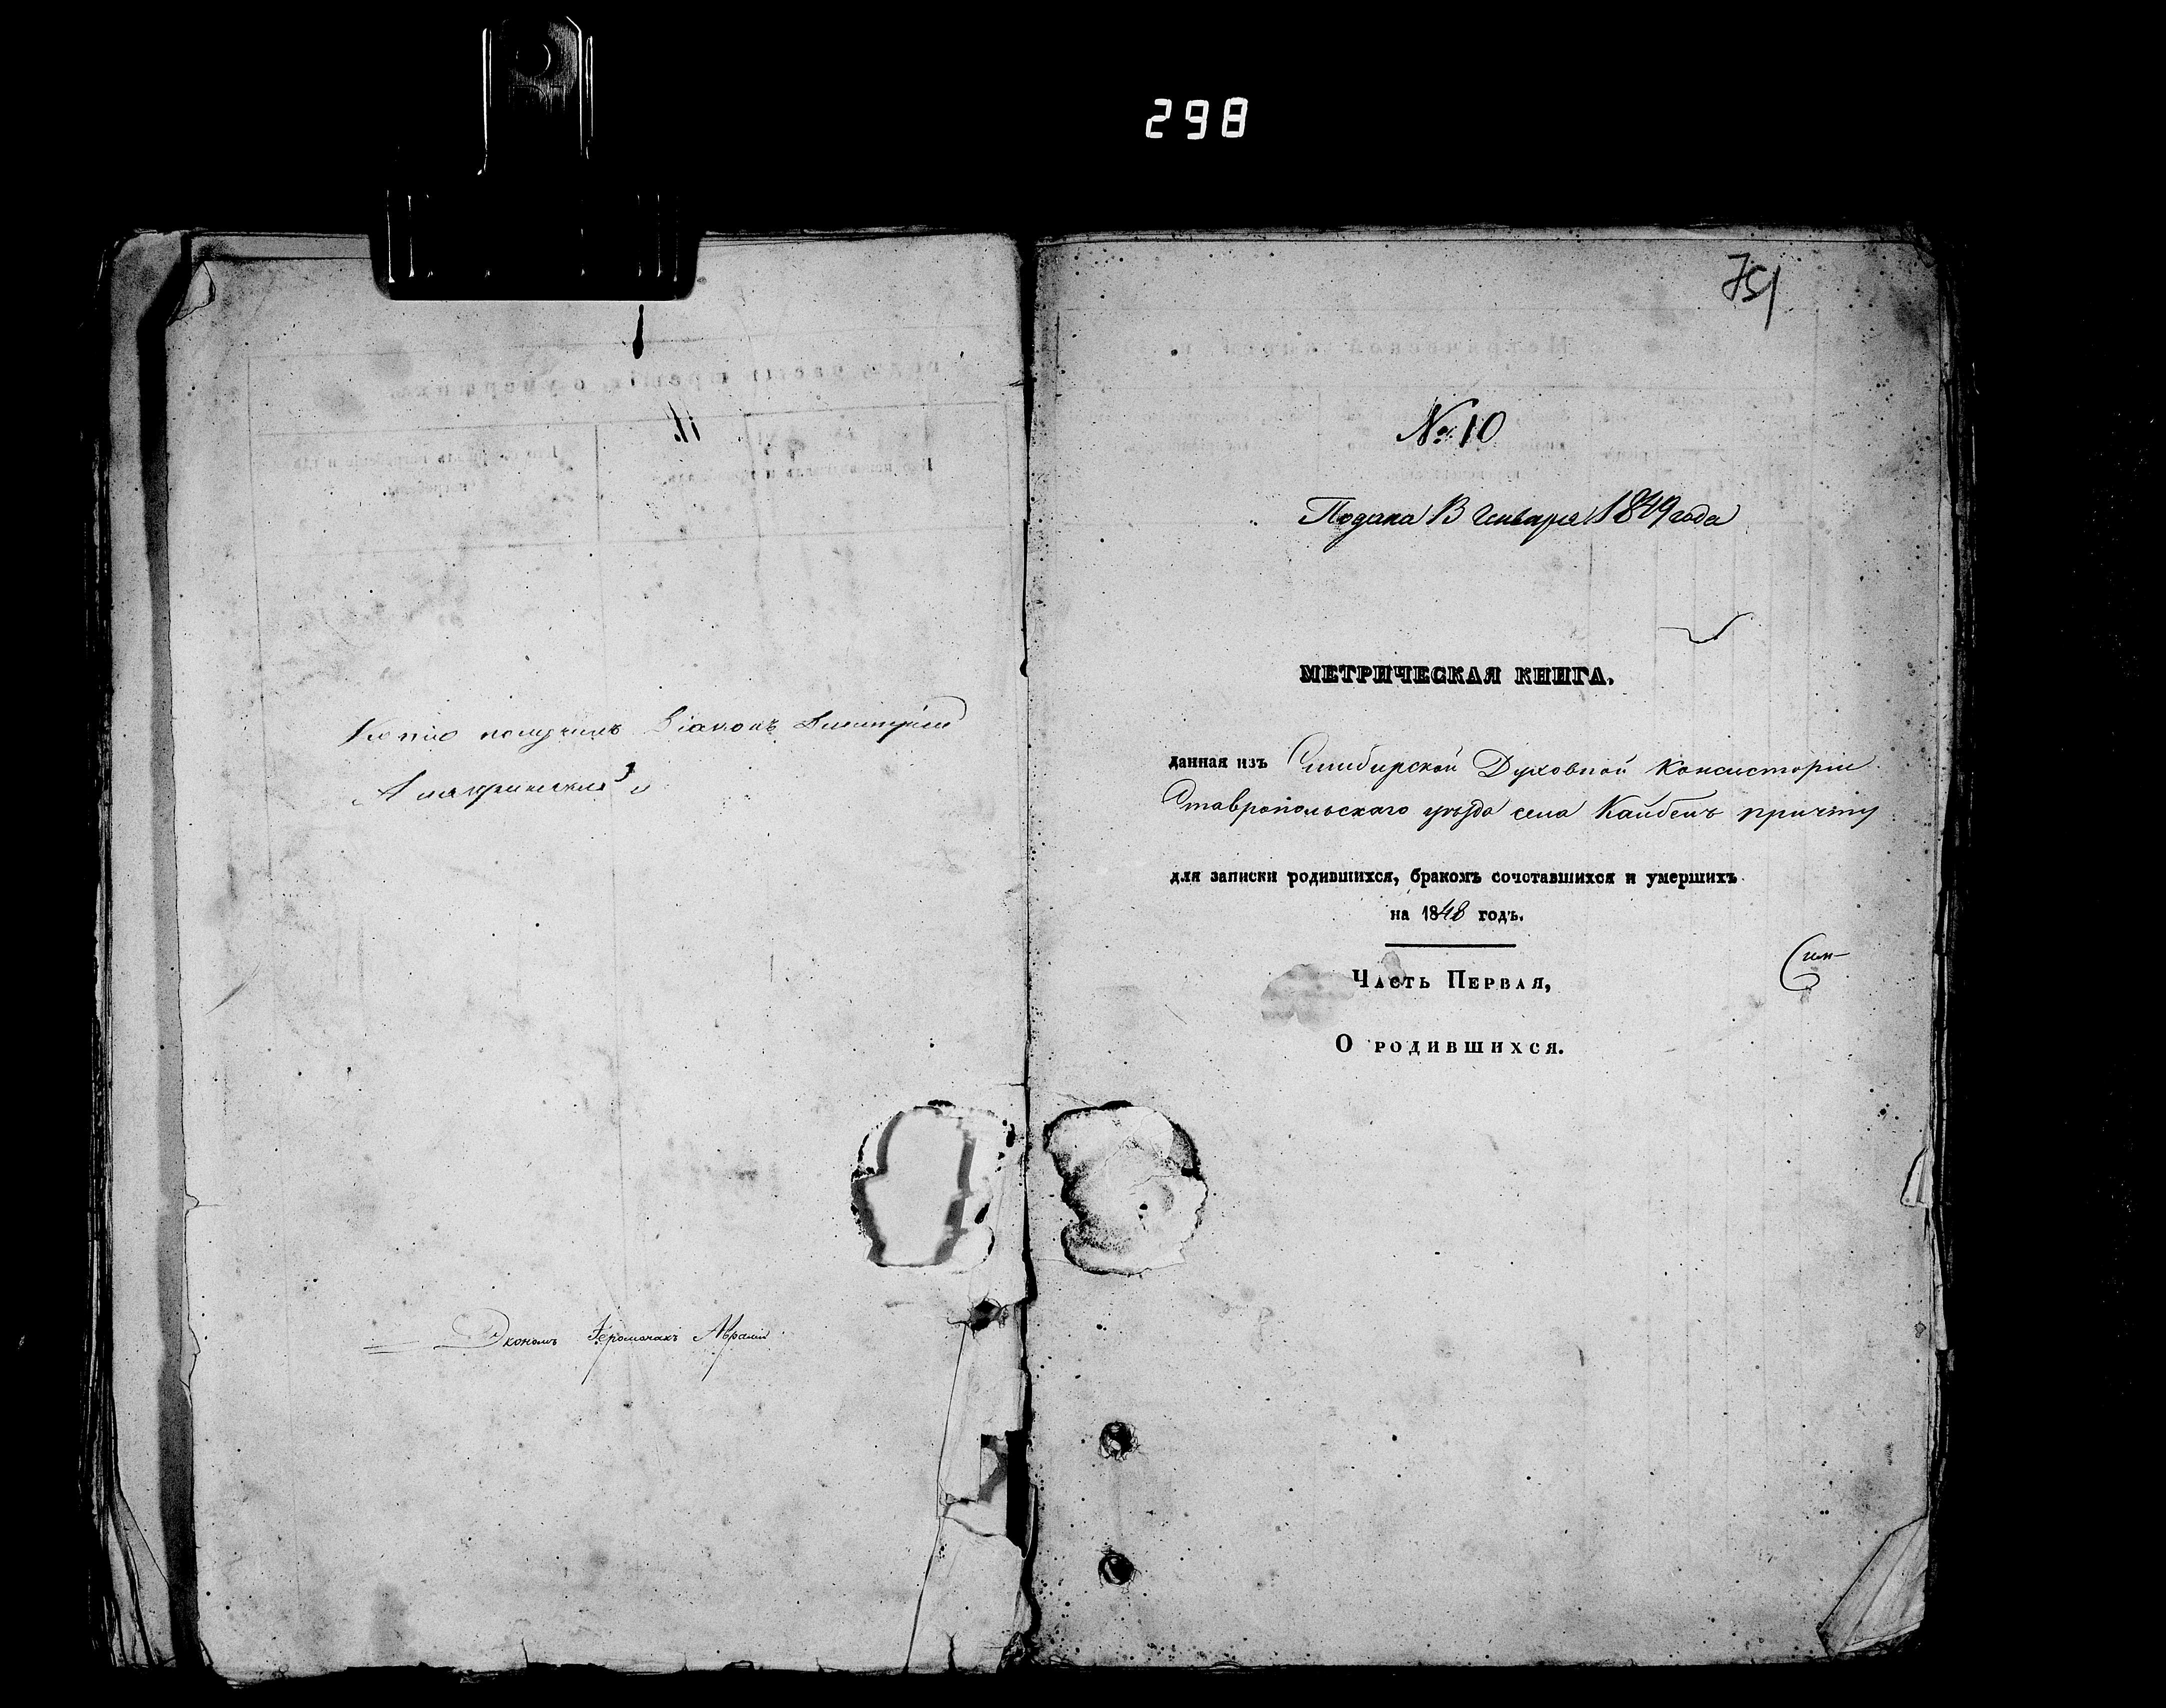 298
Копію получилъ Діаконъ Димитрій
Экономъ Іеромонахъ Авраамій
751
№ 10
Подана 13 Генваря 1849 года
МЕТРИЧЕСКАЯ КНИГА,
данная изъ Симбирской Духовной Консисторіи
Ставропольскаго уѣзда села Кайбелъ причту
для записки родившихся, бракомъ сочетавшихся и умершихъ
на 1848 годъ.
Сим-
Часть Первая,
О родившихся.